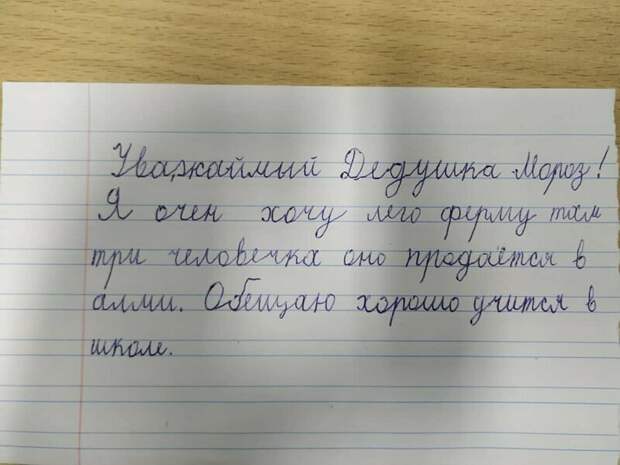 Уважаймый Дедушка Мороз!
Я очен хочу лего ферму там
три человечка оно продаётся в
алми. Обещаю хорошо учится в
школе.